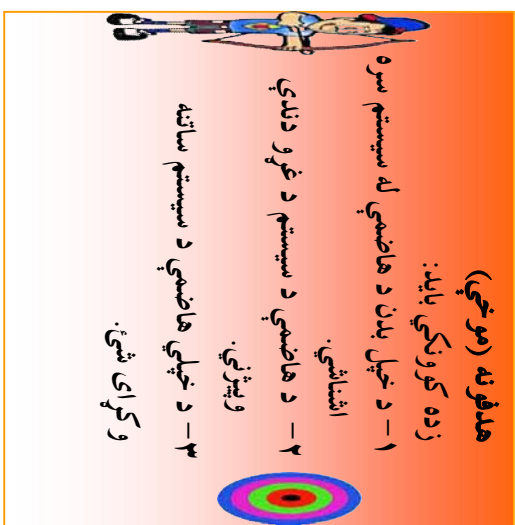 هدفونه (موخې)
زده کوونکي بايد:
۱- د خپل بدن د هاضمې له سيستم سره
اشناشي.
۲- د هاضمې د سيستم د غړو دندې
وپيژني.
۳- د خپلې هاضمې د سيستم ساتنه
وکړای شئ.